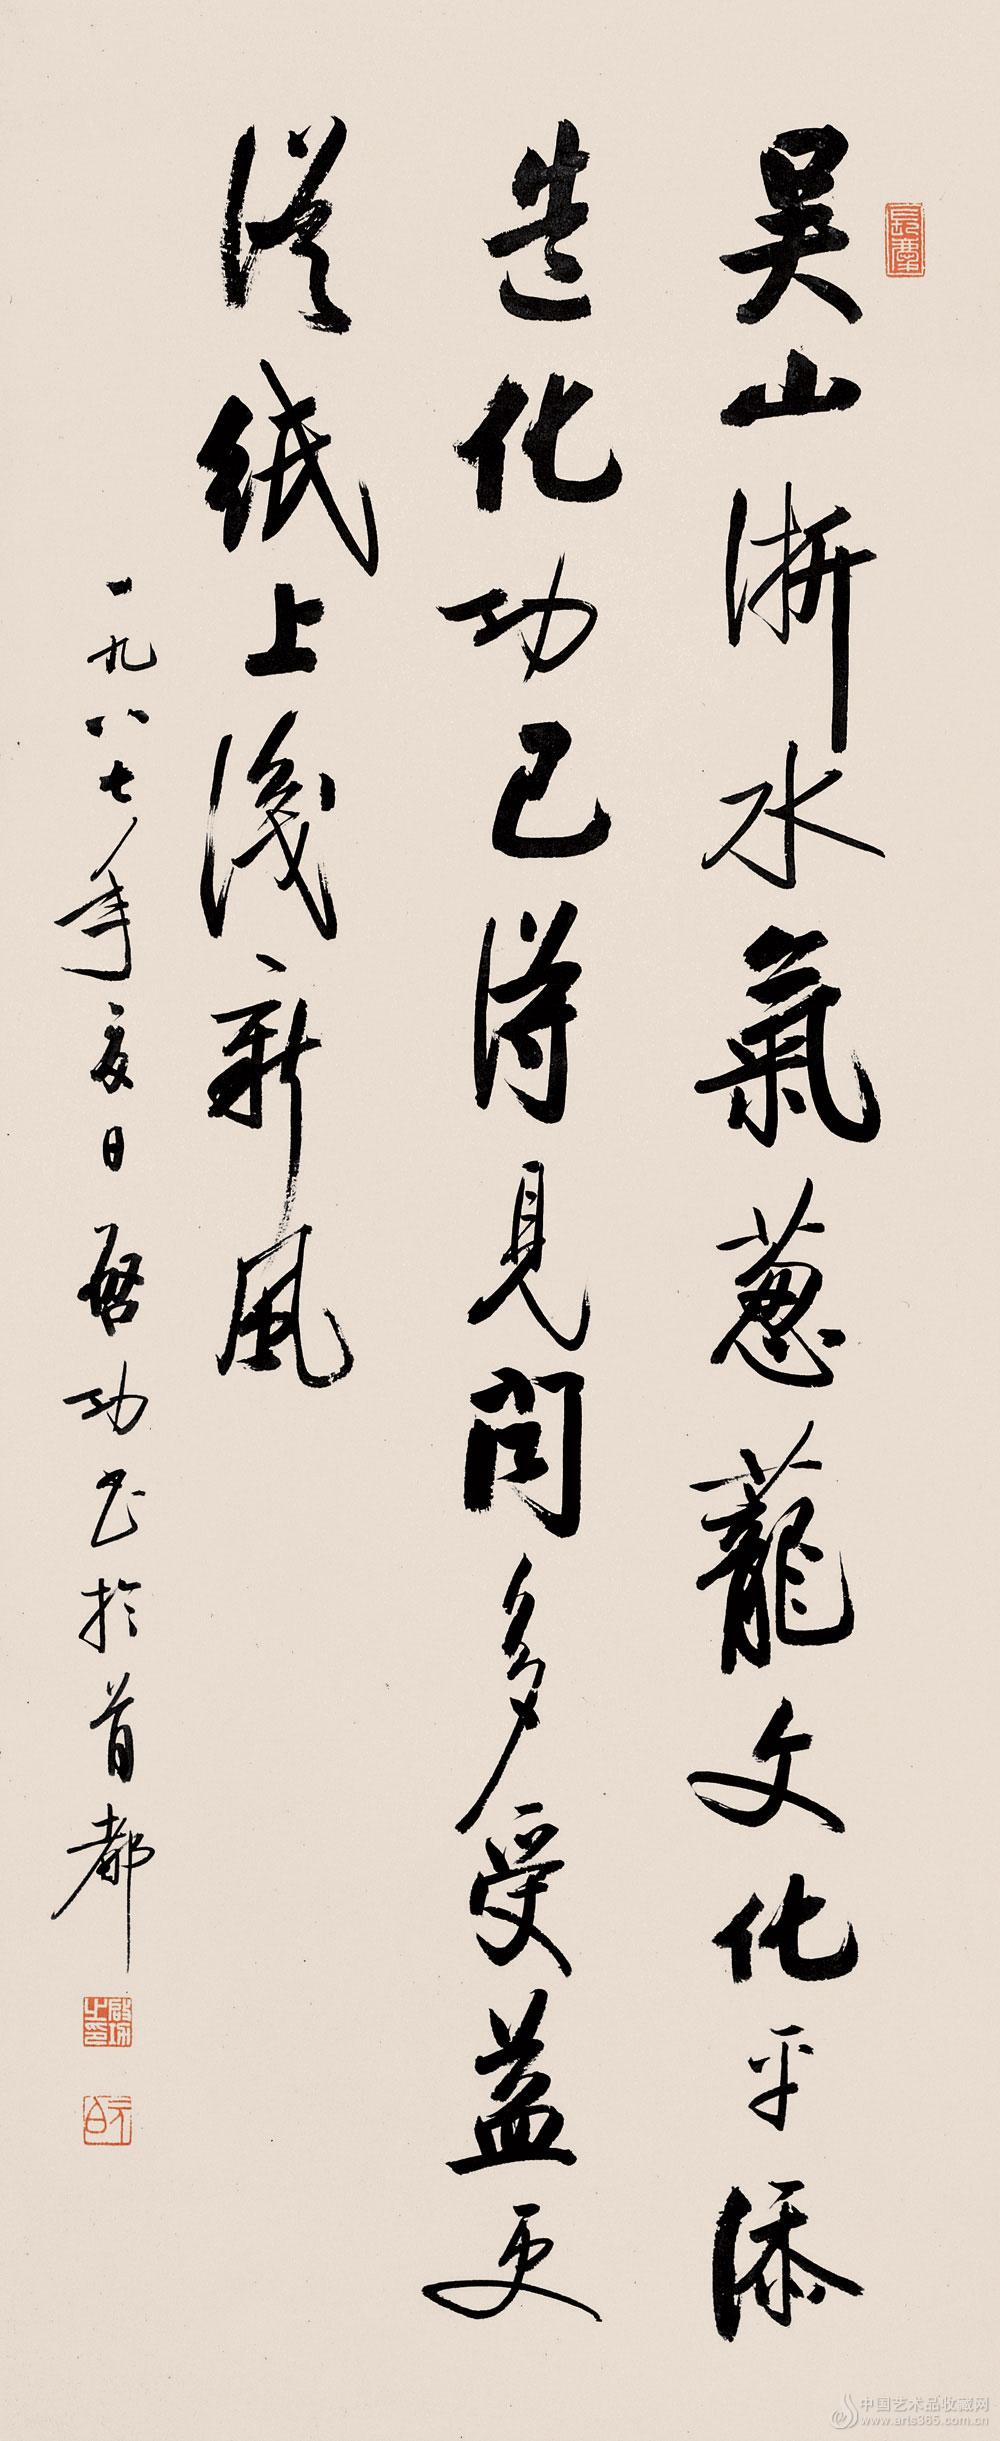 吴山浙水氣葱蘢文化平添
造化功已得見闻多受益更
從纸上識新風
一九八七年夏日啓功书於首都
啟功之印
元白
中国艺术品收藏网
www.arts365.com.cn